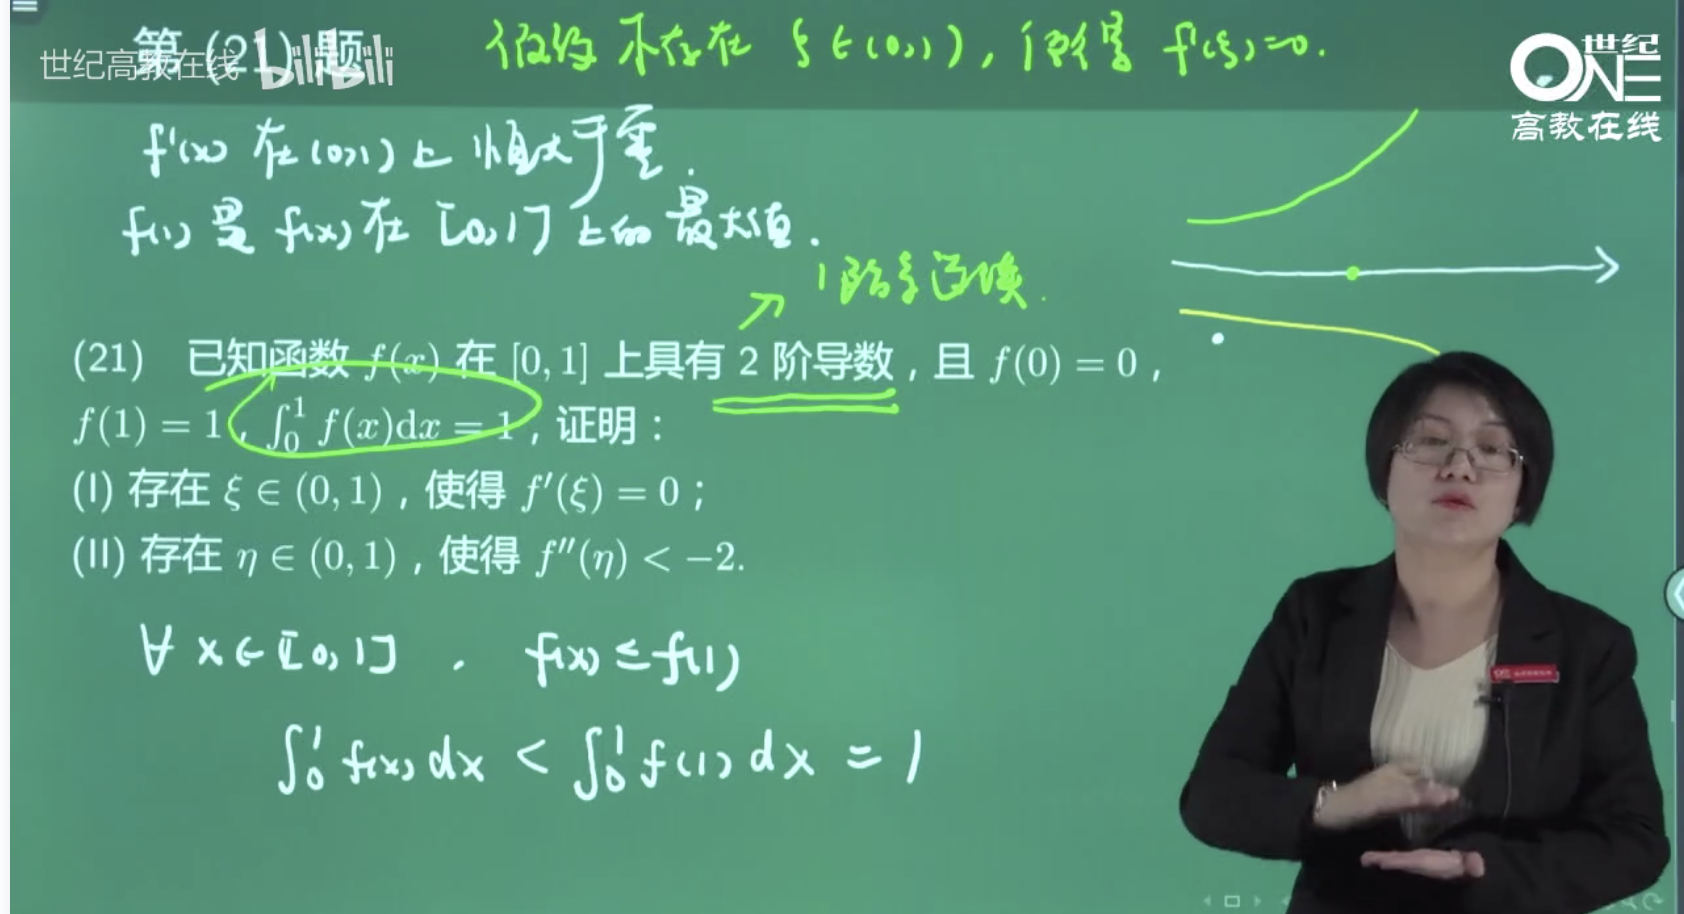 第 (21) 题 假设不存在 ξ∈(0,1), 使得 f'(ξ)=0.
世纪高教在线 bilibili
世纪
ONE
高教在线
f'(x) 在(0,1)上 恒大于零.
f(1) 是 f(x) 在 [0,1] 上的 最大值.
1阶导连续.
(21) 已知函数 f(x) 在 [0, 1] 上具有 2 阶导数，且 f(0) = 0，
f(1) = 1，∫₀¹ f(x)dx = 1，证明：
(I) 存在 ξ ∈ (0, 1)，使得 f′(ξ) = 0；
(II) 存在 η ∈ (0, 1)，使得 f″(η) < −2.
∀ x∈[0,1] . f(x) ≤ f(1)
∫₀¹ f(x) dx < ∫₀¹ f(1) dx = 1